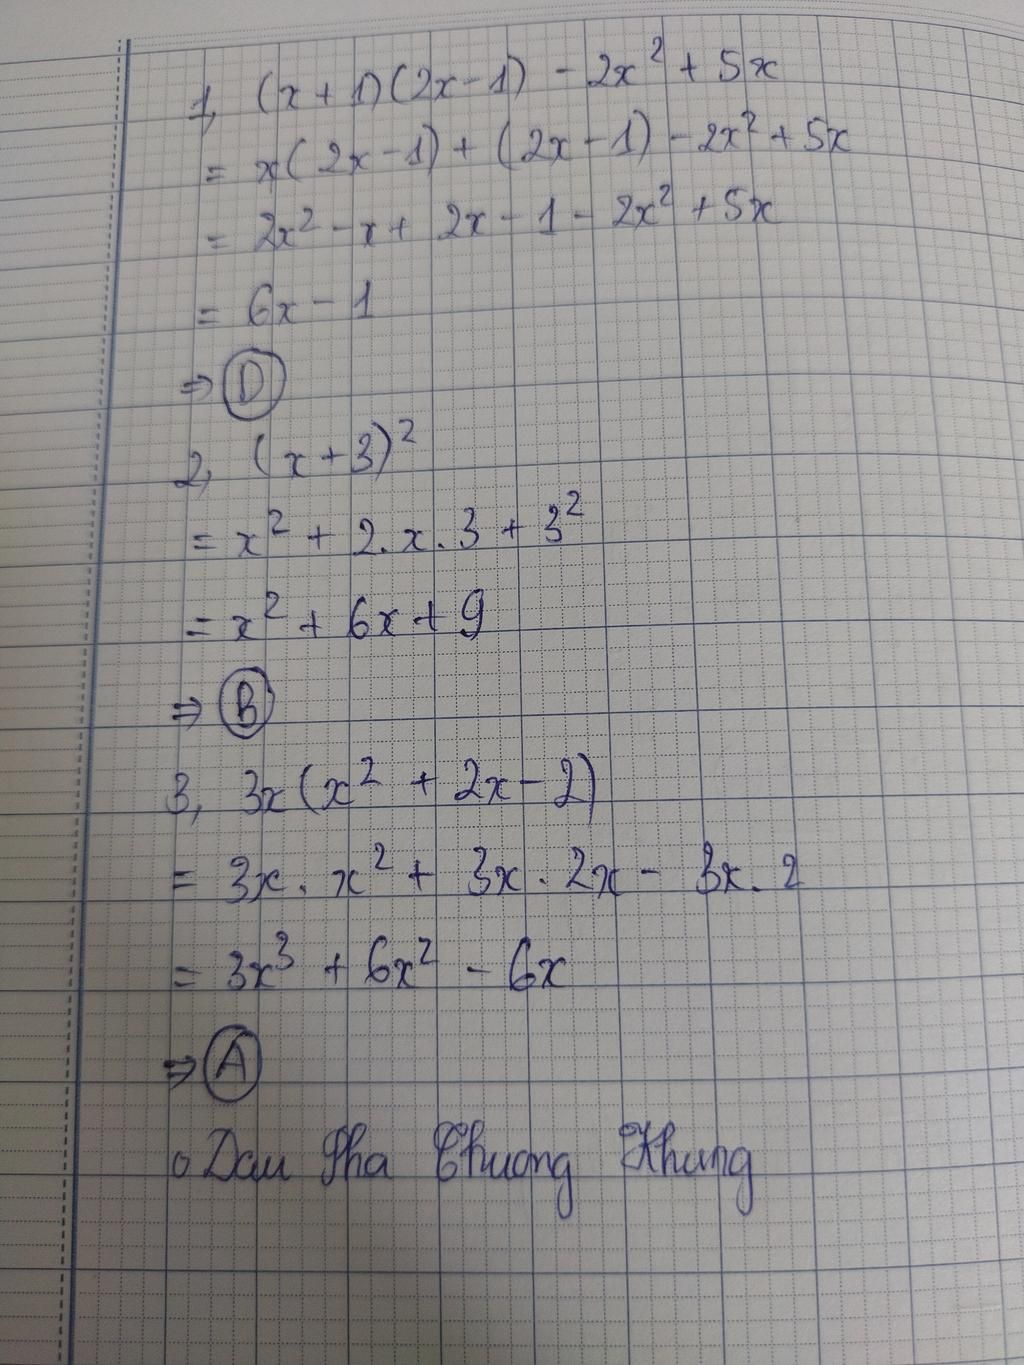 1, (x + 1)(2x - 1) - 2x² + 5x
= x(2x - 1) + (2x - 1) - 2x² + 5x
= 2x² - x + 2x - 1 - 2x² + 5x
= 6x - 1
⇒ D
2, (x + 3)²
= x² + 2.x.3 + 3²
= x² + 6x + 9
⇒ B
3, 3x(x² + 2x - 2)
= 3x . x² + 3x . 2x - 3x . 2
= 3x³ + 6x² - 6x
⇒ A
Dau Pha Thuong Khung